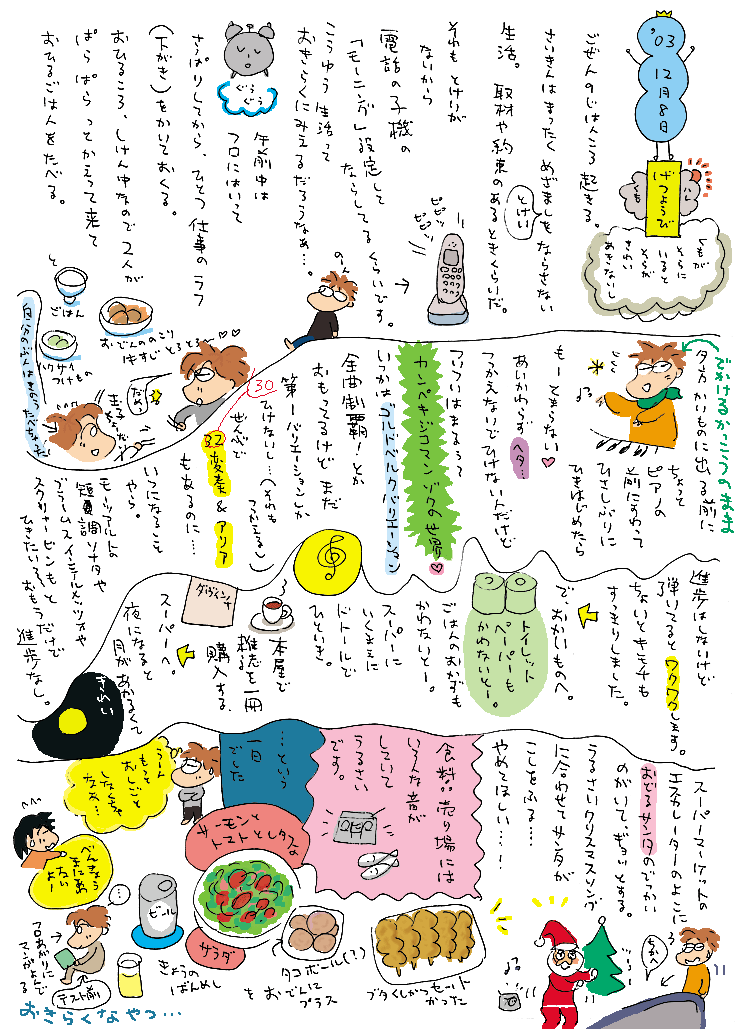 '03
12月8日
げつようび
ハレ
くも
くもが
そらに
いると
そらが
さわい
あきないし
ごぜんのじはんころ 起きる。
さいきんはまったく めざましもならさない
とけい
生活。 取材や約束のあるときくらいだ。
それも とけいが
ないから
電話の子機の
「モーニング」設定して
ならしてるくらいです。
こうゆう 生活って
おきらくにみえるだろうなぁ…。
ピピッ
ピピッ
のーん
ぐぅ
ぐぅ
午前中は
フロにはいって
さっぱりしてから、ひとつ 仕事の ラフ
(下がき)をかいておくる。
おひるころ、しけん中なので 2人が
ぱらぱらっと かえって 来て
おひるごはんをたべる。
と
ごはん
おでんののこり
牛すじとろとろ
ハクサイ
つけもの
自分のぶんはきのうたべちゃった
だめ
でかけるかっこうのまま
夕方 かいものに出る前に
ちょっと
ピアノの
前にすわって
ひさしぶりに
ひきはじめたら
もーとまらない
あいかわらず ヘタ…
つっかえないでひけないんだけど
ついついはまるって
カンペキジコマンゾクの世界
いつかは ゴルドベルクバリエーション
全曲制覇!とか
おもってるけど まだ
第一バリエーションしか
ひけないし…(それも
つっかえる)
ぜんぶで
30
32変奏&アリア
もあるのに…
いつになること
やら。
モーツアルトの
短調ソナタや
ブラームスインテルメッツォや
スクリャービンも、と
ひきたいと、おもうだけで
進歩なし。
進歩はしないけど
弾いてると ワクワクします。
ちょいとキモチも
すっきりしました。
で、おかいものへ。
トイレット
ペーパーも
かわないとー。
ごはんのおかずも
かわないとー。
スーパーに
いくまえに
ドトールで
ひといき。
本屋で
雑誌を一冊
購入する。
ダ・ヴィンチ
スーパーへ。
夜になると
月があかるくて
きれい
スーパーマーケットの
エスカレーターのよこに
おどるサンタのでっかい
のがいて…ギョッとする。
うるさいクリスマスソング
に合わせてサンタが
こしをふる…
やめてほしい…!
ちか
食料売り場には
いろんな音が
していて
うるさい
です。
…という
一日
でした
うーん
もっと
おしごと
しなくちゃ
なぁ…
べんきょう
まにあわ
ない
よー
サーモンと
トマトとレタスな
サラダ
ビール
きょうの
ばんめし
タコボール(?)
をおでんに
プラス
ブタくしかつセット
かった
フロあがりに
マンガよんでる
テスト前
おきらくなやつ…